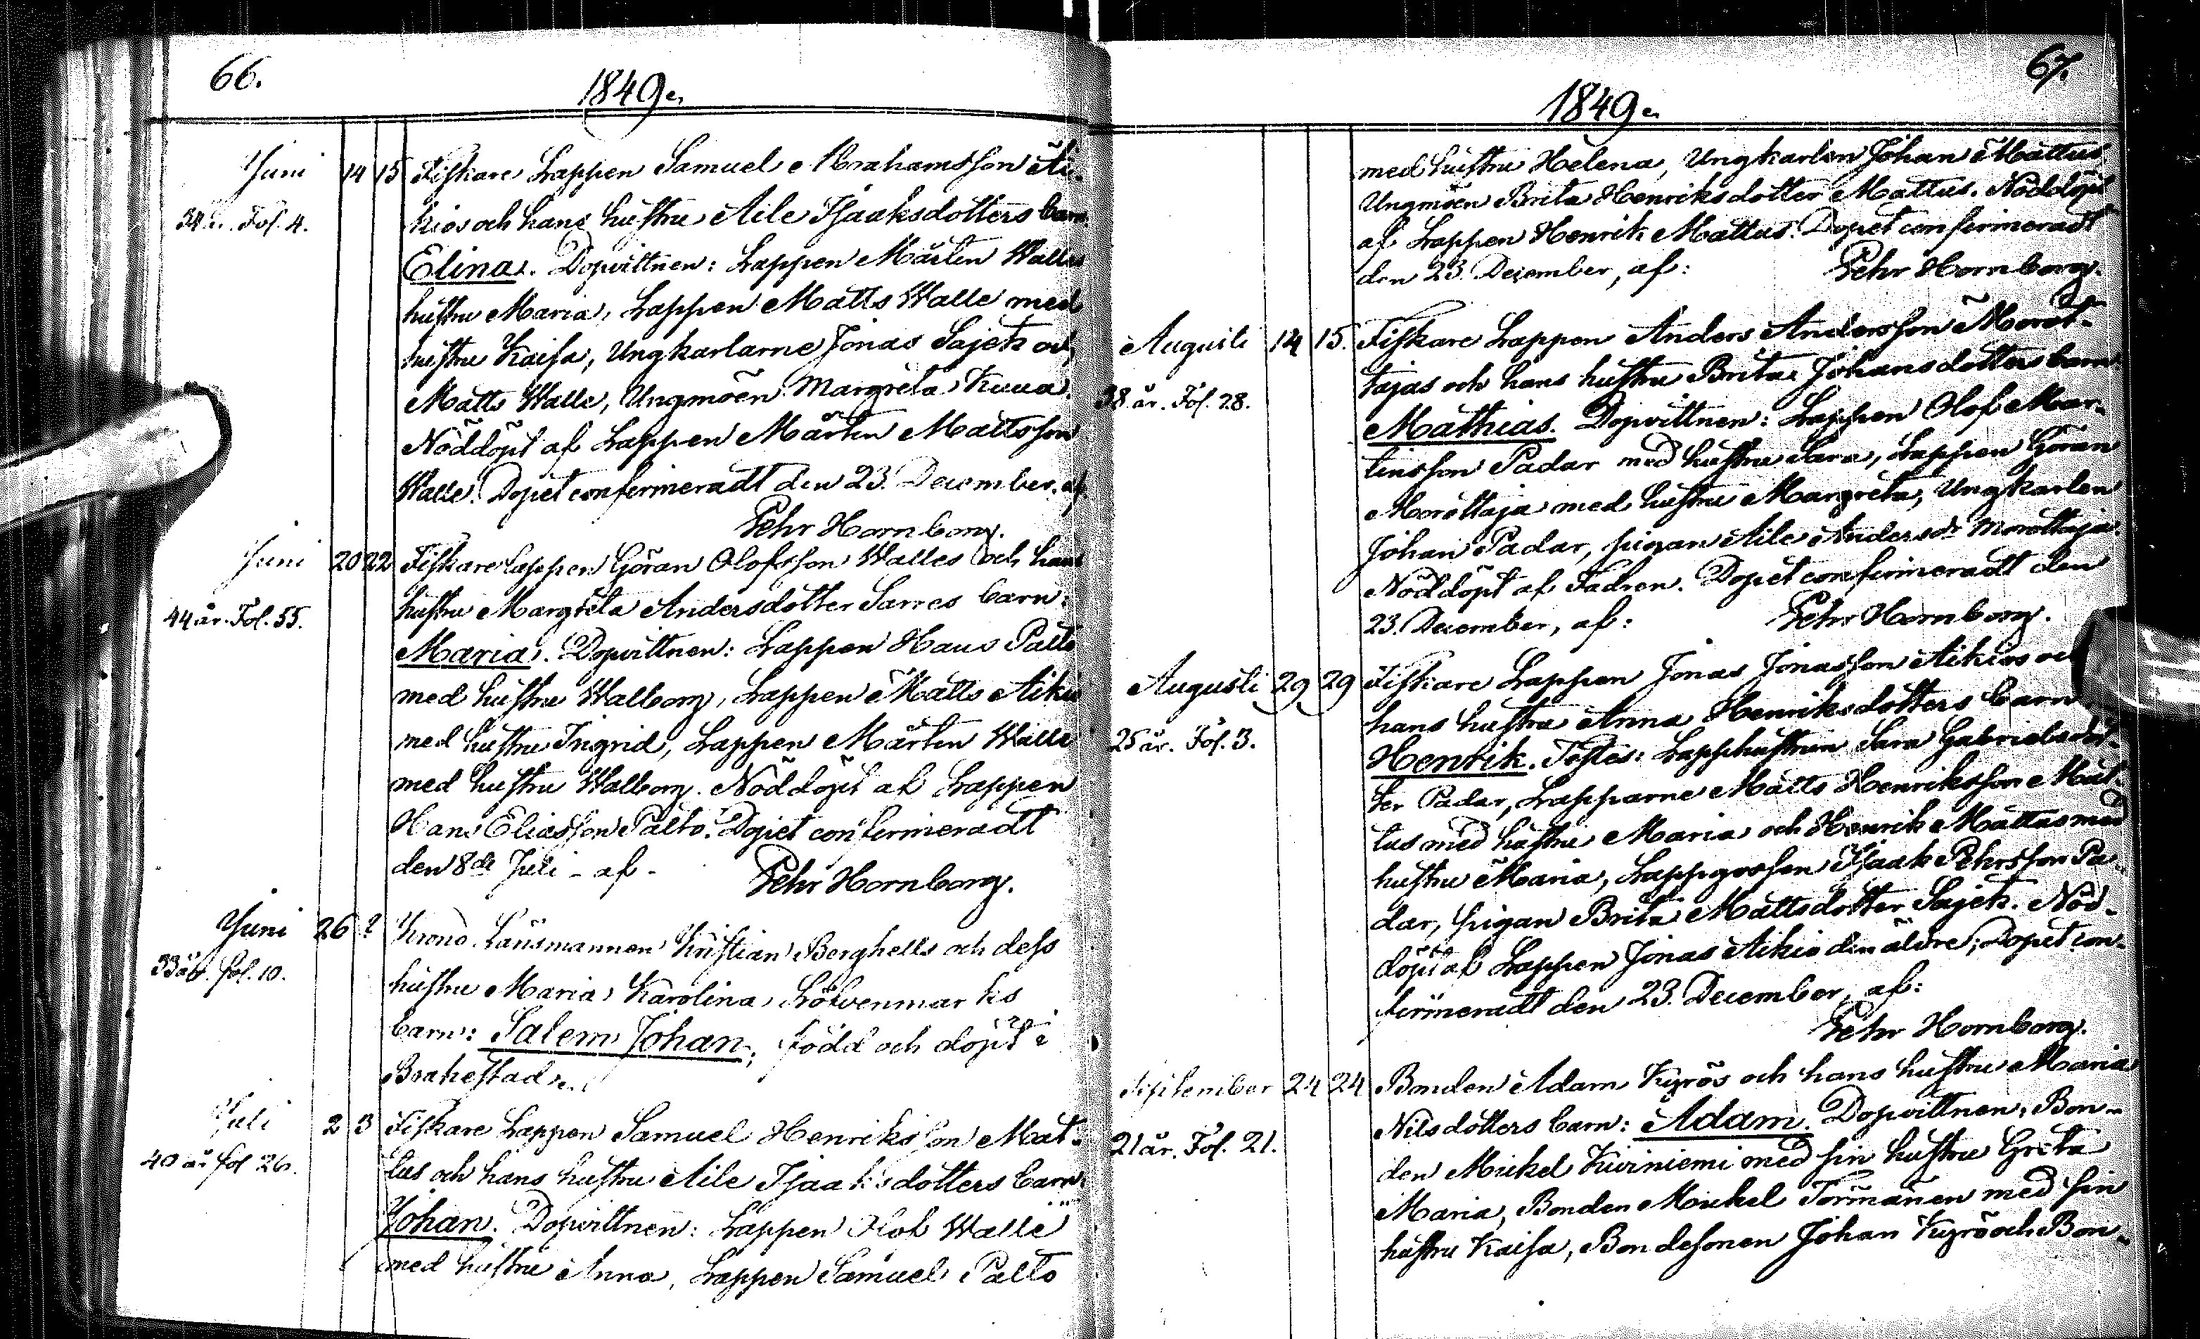 66.
1849.
Juni 14 15 Fiskare Lappen Samuel Abrahamsson Ai-
34 år. Fol. 4.
kios och hans hustru Aile Isaaksdotters barn
Elina. Dopvittnen: Lappen Mårten Walles
hustru Maria, Lappen Matts Walle med
hustru Kaisa, Ungkarlarne Jonas Sajets och
Matts Walle, Ungmöen Margreta Kuua.
Nöddöpt af Lappen Mårten Mattsson
Walle. Dopet confirmeradt den 23. December. af
Pehr Hornborg.
Juni 20 22 Fiskare Lappen Göran Olofsson Walles och hans
44 år. Fol. 55.
hustru Margreta Andersdotter Sarres barn:
Maria. Dopvittnen: Lappen Hans Palto
med hustru Walborg, Lappen Matts Aikio
med hustru Ingrid, Lappen Mårten Walle
med hustru Walborg. Nöddöpt af Lappen
Hans Eliasson Palto. Dopet confirmeradt
den 8de Juli - af -
Pehr Hornborg.
Juni 26 ? Krono Länsmannen Kristian Berghells och dess
33 år. fol. 10.
hustru Maria Karolina
barn: Salem Johan, född och döpt i
Brahestad.
Juli 2 3 Fiskare Lappen Samuel Henriksson Mat-
40 år fol 26.
tus och hans hustru Aile Isaaksdotters barn
Johan. Dopvittnen: Lappen Olof Walle
med hustru Anna, Lappen Samuel Palto
67.
1849.
med hustru Helena, Ungkarlen Johan Mattus
Ungmöen Brita Henriksdotter Mattus. Nöddöpt
af Lappen Henrik Mattus. Dopet confirmeradt
den 23. December, af: Pehr Hornborg.
Augusti 14 15. Fiskare Lappen Anders Andersson Morot-
38 år. Fol. 28.
tajas och hans hustru Brita Johansdotters barn
Mathias. Dopvittnen: Lappen Olof Mar-
tinsson Padar med hustru Sara, Lappen Göran
Morottaja med hustru Margreta, Ungkarlen
Johan Padar, pigan Aile Andersdr Morottaja.
Nöddöpt af Fadren. Dopet confirmeradt den
23. December, af: Pehr Hornborg.
Augusti 29 29 Fiskare Lappen Jonas Jonasson Aikios och
25 år. Fol. 3.
hans hustru Anna Henriksdotters barn
Henrik. Testes: Lapphustrun Sara Gabrielsdot-
ter Padar, Lapparne Matts Henriksson Mat-
tus med hustru Maria och Henrik Mattus med
hustru Maria, Lappgossen Isaak Pehrsson Pa-
dar, pigan Brita Mattsdotter Sajets. Nöd-
döpt af Lappen Jonas Aikio den äldre; Dopet con-
firmeradt den 23. December, af:
Pehr Hornborg.
September 24 24 Bonden Adam Kyrös och hans hustru Maria
21 år. Fol. 21.
Nilsdotters barn: Adam. Dopvittnen: Bon-
den Mickel Kiviniemi med sin hustru Greta
Maria, Bonden Mickel Törmänen med sin
hustru Kaisa, Bondesonen Johan Kyrö och Bon-